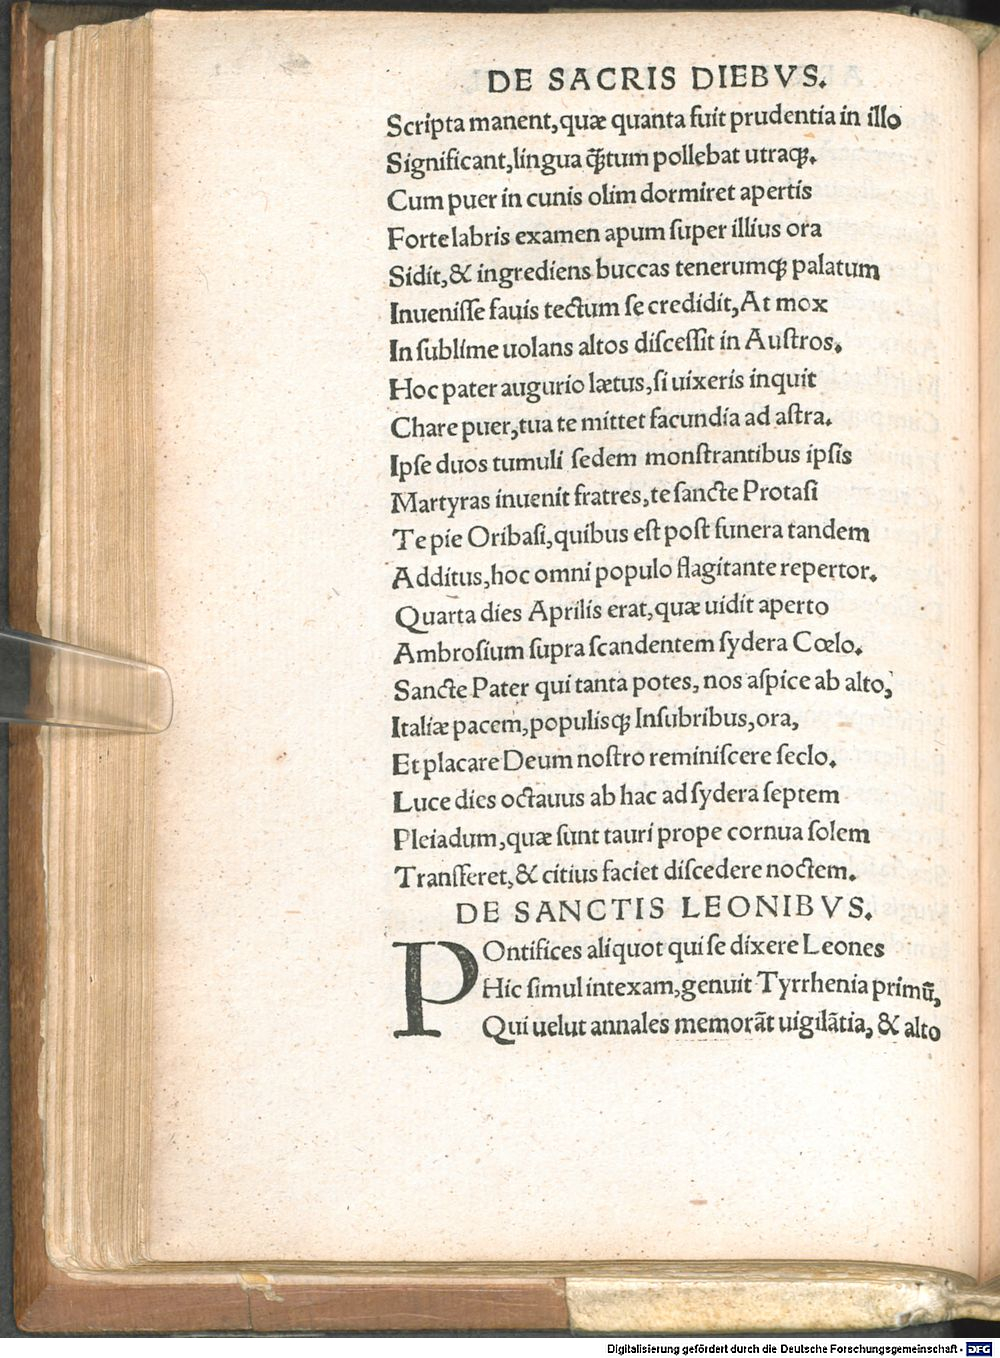 DE SACRIS DIEBVS.
Scripta manent, quæ quanta fuit prudentia in illo
Significant, lingua q̃tum pollebat utraqꝫ.
Cum puer in cunis olim dormiret apertis
Forte labris examen apum ſuper illius ora
Sidit, & ingrediens buccas tenerumqꝫ palatum
Inueniſſe fauis tectum ſe credidit, At mox
In ſublime uolans altos diſceſſit in Auſtros.
Hoc pater augurio lætus, ſi uixeris inquit
Chare puer, tua te mittet facundia ad aſtra.
Ipſe duos tumuli ſedem monſtrantibus ipſis
Martyras inuenit fratres, te ſancte Protaſi
Te pie Oribaſi, quibus eſt poſt funera tandem
Additus, hoc omni populo flagitante repertor.
Quarta dies Aprilis erat, quæ uidit aperto
Ambroſium ſupra ſcandentem ſydera Cœlo.
Sancte Pater qui tanta potes, nos aſpice ab alto,
Italiæ pacem, populisqꝫ Inſubribus, ora,
Et placare Deum noſtro reminiſcere ſeclo.
Luce dies octauus ab hac ad ſydera ſeptem
Pleiadum, quæ ſunt tauri prope cornua ſolem
Tranſferet, & citius faciet diſcedere noctem.
DE SANCTIS LEONIBVS.
POntifices aliquot qui ſe dixere Leones
Hic ſimul intexam, genuit Tyrrhenia primū,
Qui uelut annales memorāt uigilātia, & alto
Digitalisierung gefördert durch die Deutsche Forschungsgemeinschaft - DFG